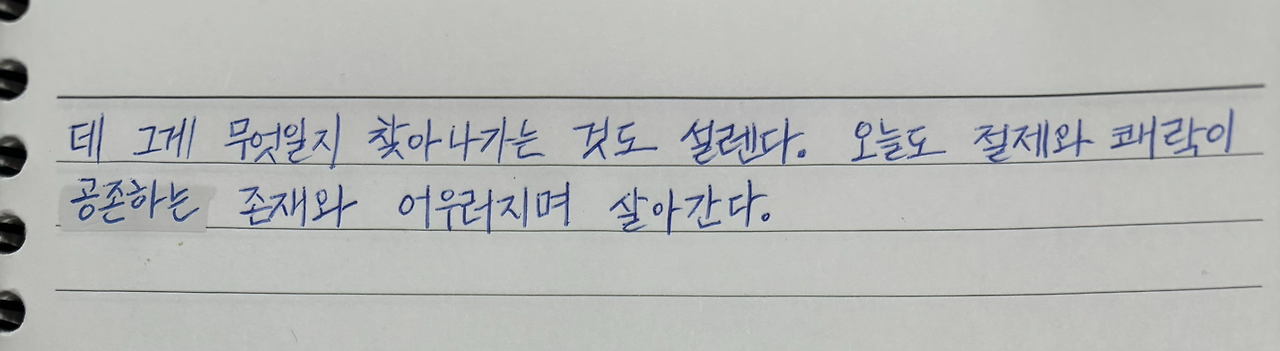 데 그게 무엇일지 찾아나가는 것도 설렌다. 오늘도 절제와 쾌락이
공존하는 존재와 어우러지며 살아간다.